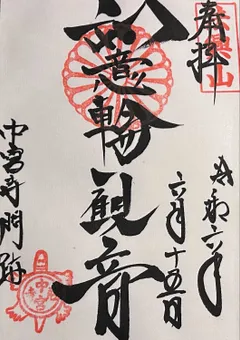 奉拝
令和六年
六月十五日
如意輪観音
中宮寺門跡
中宮